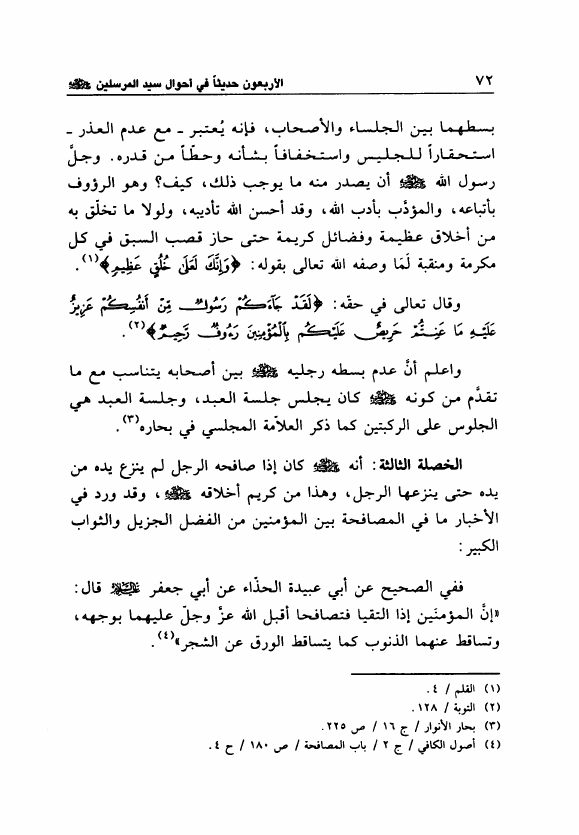 ٧٢ الأربعون حديثاً في أحوال سيد المرسلين ﷺ
بسطهما بين الجلساء والأصحاب، فإنه يُعتبر ـ مع عدم العذر ـ
استحقاراً للجليس واستخفافاً بشأنه وحطّاً من قدره. وجلَّ
رسول الله ﷺ أن يصدر منه ما يوجب ذلك، كيف؟ وهو الرؤوف
بأتباعه، والمؤدَّب بأدب الله، وقد أحسن الله تأديبه، ولولا ما تخلّق به
من أخلاق عظيمة وفضائل كريمة حتى حاز قصب السبق في كل
مكرمة ومنقبة لَمَا وصفه الله تعالى بقوله: ﴿وَإِنَّكَ لَعَلَىٰ خُلُقٍ عَظِيمٍ﴾(١).
وقال تعالى في حقّه: ﴿لَقَدْ جَآءَكُمْ رَسُولٌ مِّنْ أَنفُسِكُمْ عَزِيزٌ
عَلَيْهِ مَا عَنِتُّمْ حَرِيصٌ عَلَيْكُم بِٱلْمُؤْمِنِينَ رَءُوفٌ رَّحِيمٌ﴾(٢).
واعلم أنَّ عدم بسطه رجليه ﷺ بين أصحابه يتناسب مع ما
تقدَّم من كونه ﷺ كان يجلس جلسة العبد، وجلسة العبد هي
الجلوس على الركبتين كما ذكر العلاّمة المجلسي في بحاره(٣).
الخصلة الثالثة: أنه ﷺ كان إذا صافحه الرجل لم ينزع يده من
يده حتى ينزعها الرجل، وهذا من كريم أخلاقه ﷺ، وقد ورد في
الأخبار ما في المصافحة بين المؤمنين من الفضل الجزيل والثواب
الكبير:
ففي الصحيح عن أبي عبيدة الحذّاء عن أبي جعفر عليه السلام قال:
«إنَّ المؤمنَين إذا التقيا فتصافحا أقبل الله عزَّ وجلّ عليهما بوجهه،
وتساقط عنهما الذنوب كما يتساقط الورق عن الشجر»(٤).
(١) القلم / ٤.
(٢) التوبة / ١٢٨.
(٣) بحار الأنوار / ج ١٦ / ص ٢٢٥.
(٤) أصول الكافي / ج ٢ / باب المصافحة / ص ١٨٠ / ح ٤.